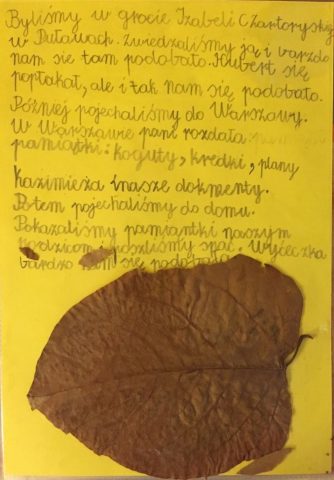 Byliśmy w grocie Izabeli Czartoryskej
w Puławach. Zwiedzaliśmy ją i barzdo
nam się tam podobało. Hubert się
popłakał, ale i tak nam się podobało.
Później pojechaliśmy do Warszawy.
W Warszawie pani rozdała
pamiątki: koguty, kredki, plany
Kazimieża inasze dokmenty.
Potem pojechaliśmy do domu.
Pokazaliśmy pamiantki naszym
rodzicom i poszliśmy spać. Wycieczka
bardzo nam się podobała.